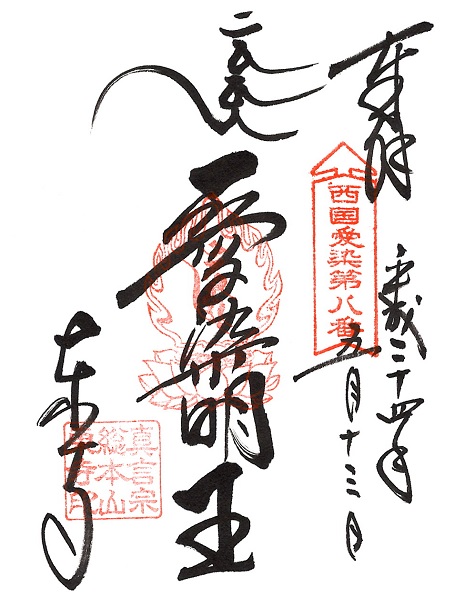 奉拝
西国愛染第八番
平成二十四年
月十三日
愛染明王
東寺
真言宗
総本山
東寺印